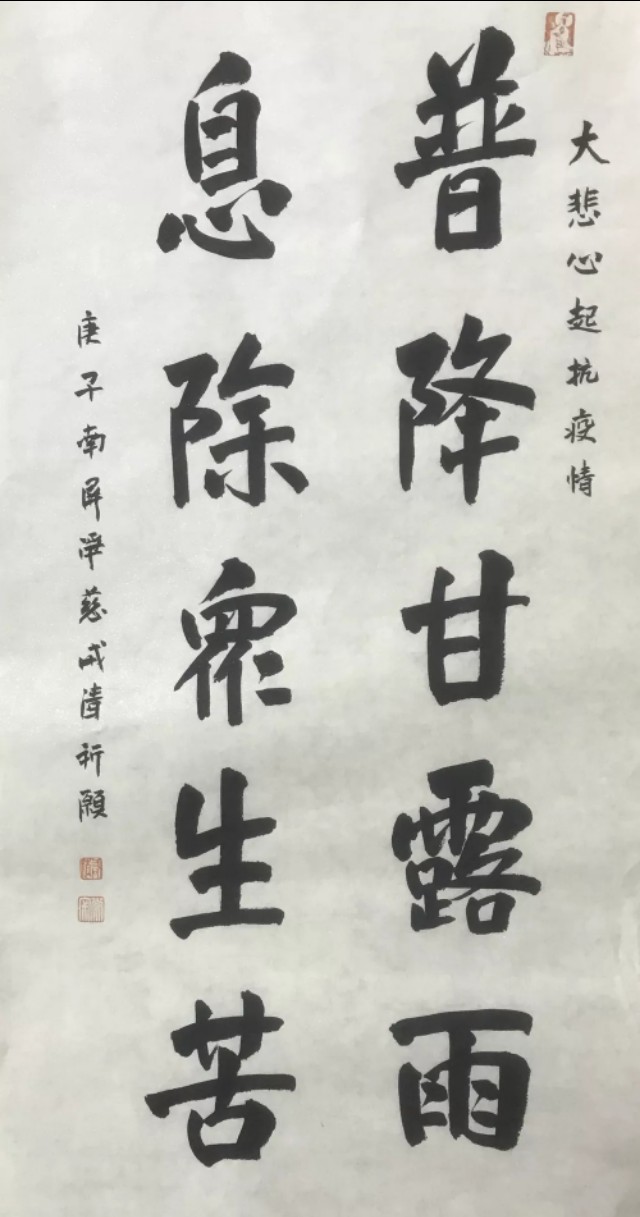 大悲心起抗疫情
普降甘露雨
息除众生苦
庚子南屏净慈戒清祈愿